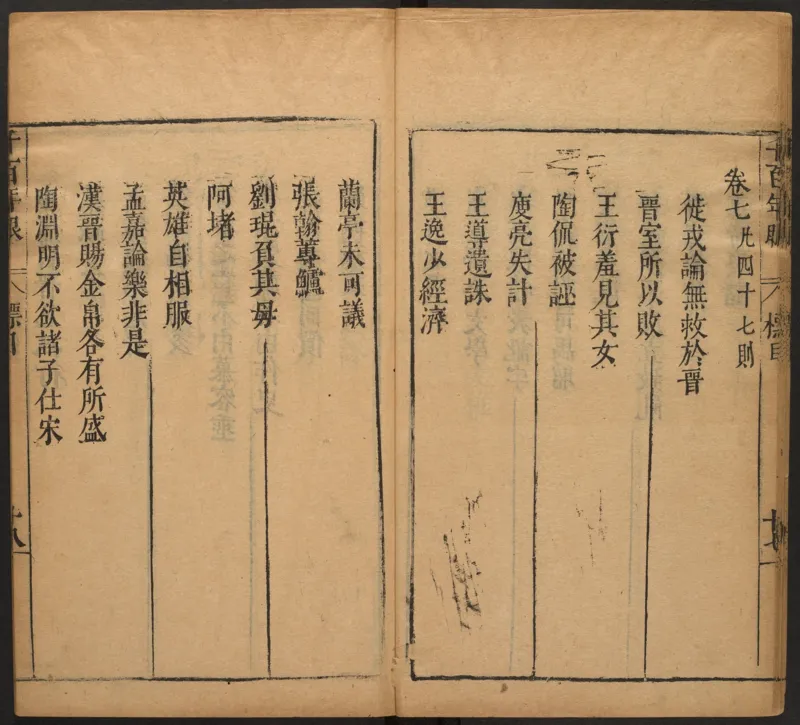 卷七凡四十七則
徙戎論無救於晉
晋室所以敗
王衍羞見其女
陶侃被誣
庾亮失計
王導遺誅
王逸少經濟
蘭亭未可議
張翰蓴鱸
劉琨負其母
阿堵
英雄自相服
孟嘉論樂非是
漢晉賜金帛各有所盛
陶淵明不欲諸子仕宋